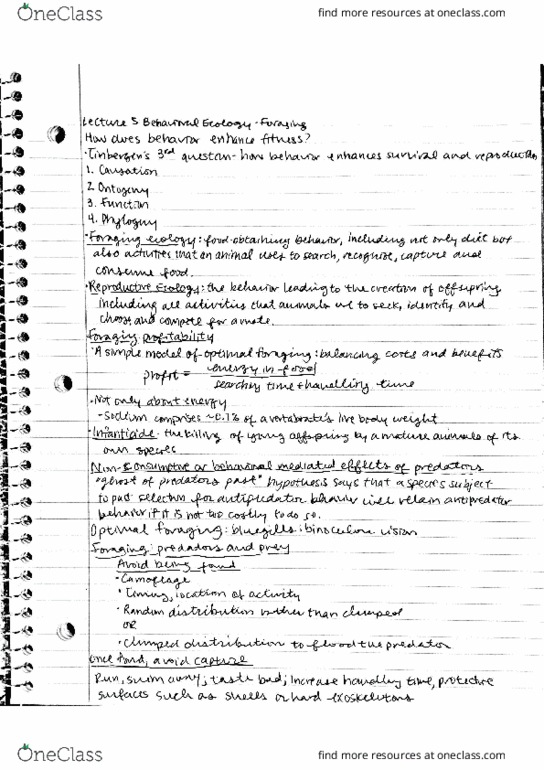 OneClass
find more resources at oneclass.com
Lecture 5 Behavioral Ecology - Foraging
How does behavior enhance fitness?
• Tinbergen's 3rd question - how behavior enhances survival and reproduction
1. Causation
2. Ontogeny
3. Function
4. Phylogeny
• Foraging ecology: food-obtaining behavior, including not only diet but
also activities that an animal uses to search, recognize, capture and
consume food.
• Reproductive Ecology: the behavior leading to the creation of offspring
including all activities that animals use to seek, identify and
choose and compete for a mate.
Foraging profitability
• A simple model of optimal foraging: balancing costs and benefits
profit = energy in food
searching time + handling time
• Not only about energy
- Sodium comprises ~0.1% of a vertabrate's live body weight
• Infanticide: the killing of young offspring by a mature animals of its
own species
Non-consumptive or behavioral mediated effects of predators
"ghost of predators past" hypothesis says that a species subject
to past selection for antipredator behavior will retain antipredator
behavior if it is not too costly to do so.
Optimal foraging: bluegills: binocular vision
Foraging: predators and prey
Avoid being found
• Camoflage
• Timing, location of activity
• Random distribution rather than clumped
OR
• Clumped distribution to flood the predator
Once found, avoid capture
Run, swim away; taste bad; increase handling time, protective
surfaces such as shells or hard exoskeletons
OneClass
find more resources at oneclass.com